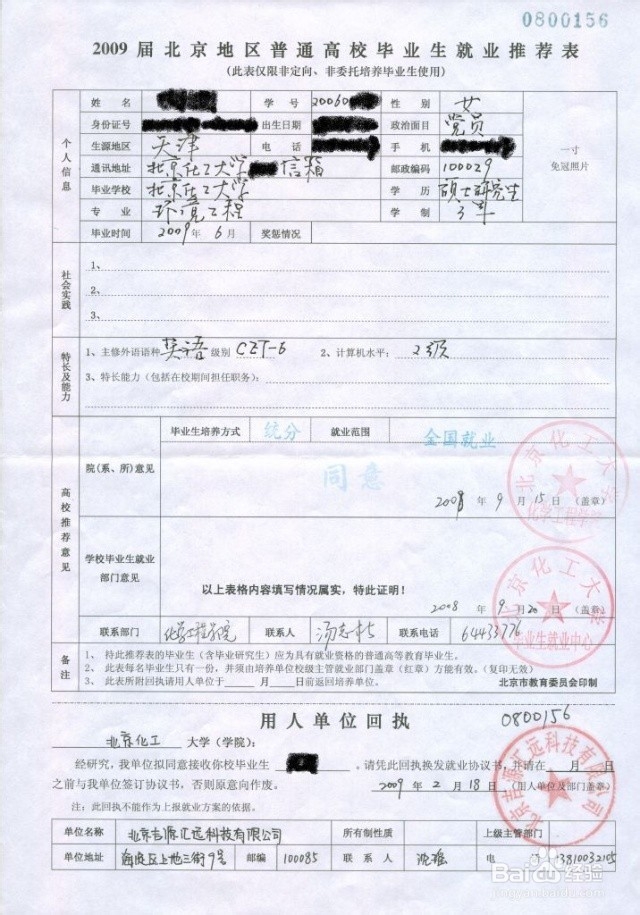 0800156
2009届北京地区普通高校毕业生就业推荐表
(此表仅限非定向、非委托培养毕业生使用)
个人信息
姓名 学号 20060 性别 女
身份证号 出生日期 政治面目 党员
生源地区 天津 电话 手机
一寸
免冠照片
通讯地址 北京化工大学 信箱 邮政编码 100029
毕业学校 北京化工大学 学历 硕士研究生
专业 环境工程 学制 3年
毕业时间 2009年6月 奖惩情况
社会实践
1、
2、
3、
特长及能力
1、主修外语语种 英语 级别 CET-6 2、计算机水平: 2级
3、特长能力(包括在校期间担任职务):
高校推荐意见
毕业生培养方式 统分 就业范围 全国就业
院(系、所)意见
同意
2008年9月15日(盖章)
北京化工大学
学校毕业生就业部门意见
以上表格内容填写情况属实,特此证明!
2008年9月20日(盖章)
北京化工大学
毕业生就业中心
联系部门 化学工程学院 联系人 联系电话 64433776
备注
1、持此推荐表的毕业生(含毕业研究生)应为具有就业资格的普通高等教育毕业生。
2、此表每名毕业生只有一份,并须由培养单位校级主管就业部门盖章(红章)方能有效。(复印无效)
3、此表所附回执请用人单位于 月 日前返回培养单位。
北京市教育委员会印制
用人单位回执
0800156
北京化工 大学(学院):
经研究,我单位拟同意接收你校毕业生 ,请凭此回执换发就业协议书,并请在 月 日
之前与我单位签订协议书,否则原意向作废。
2009年2月18日(用人单位及部门盖章)
注:此回执不能作为上报就业方案的依据。
单位名称 北京吉源汇远科技有限公司 所有制性质 上级主管部门
单位地址 海淀区上地三街9号 邮编 100085 联系人 电 13810032105
Baidu经验
jingyan.baidu.com